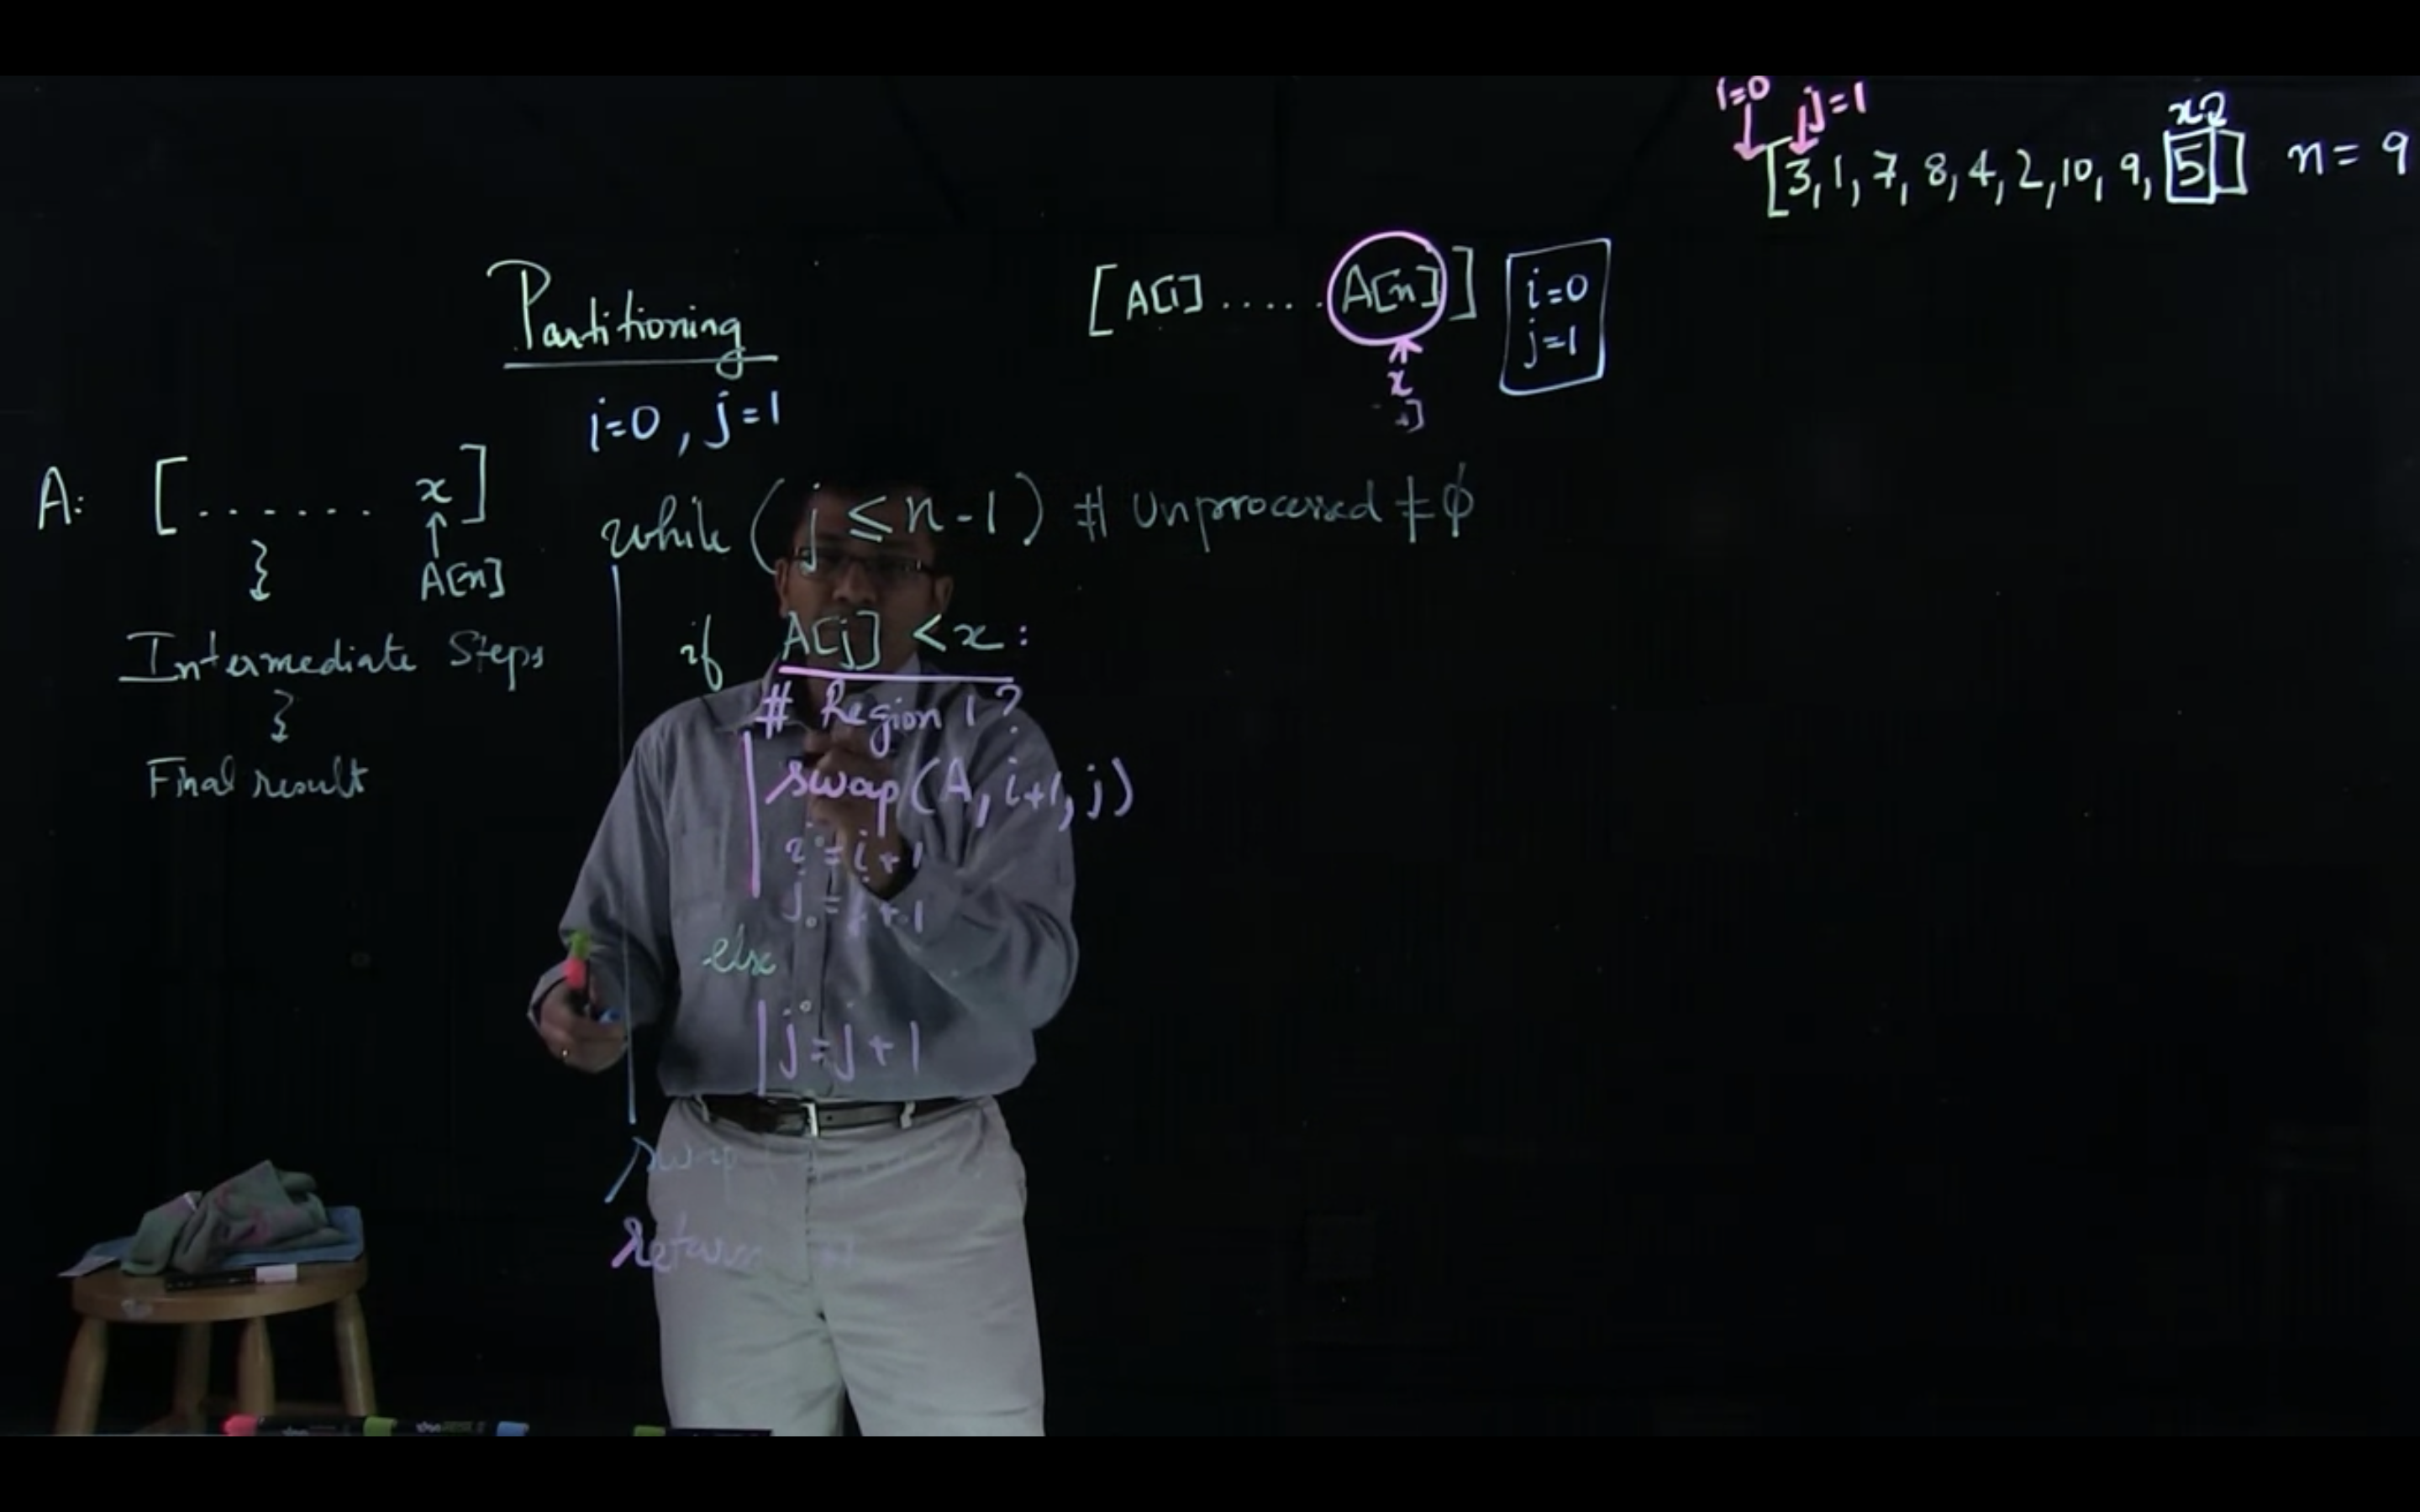 i=0 j=1 x
[3, 1, 7, 8, 4, 2, 10, 9, 5] n = 9
Partitioning
[A[1] ..... A[n]]
x
i=0
j=1
i=0, j=1
A: [....... x]
A[n]
Intermediate Steps
Final result
while (j ≤ n-1) # Unprocessed ≠ φ
if A[j] < x:
# Region 1?
swap(A, i+1, j)
i = i+1
j = j+1
else
j = j+1
swap
return